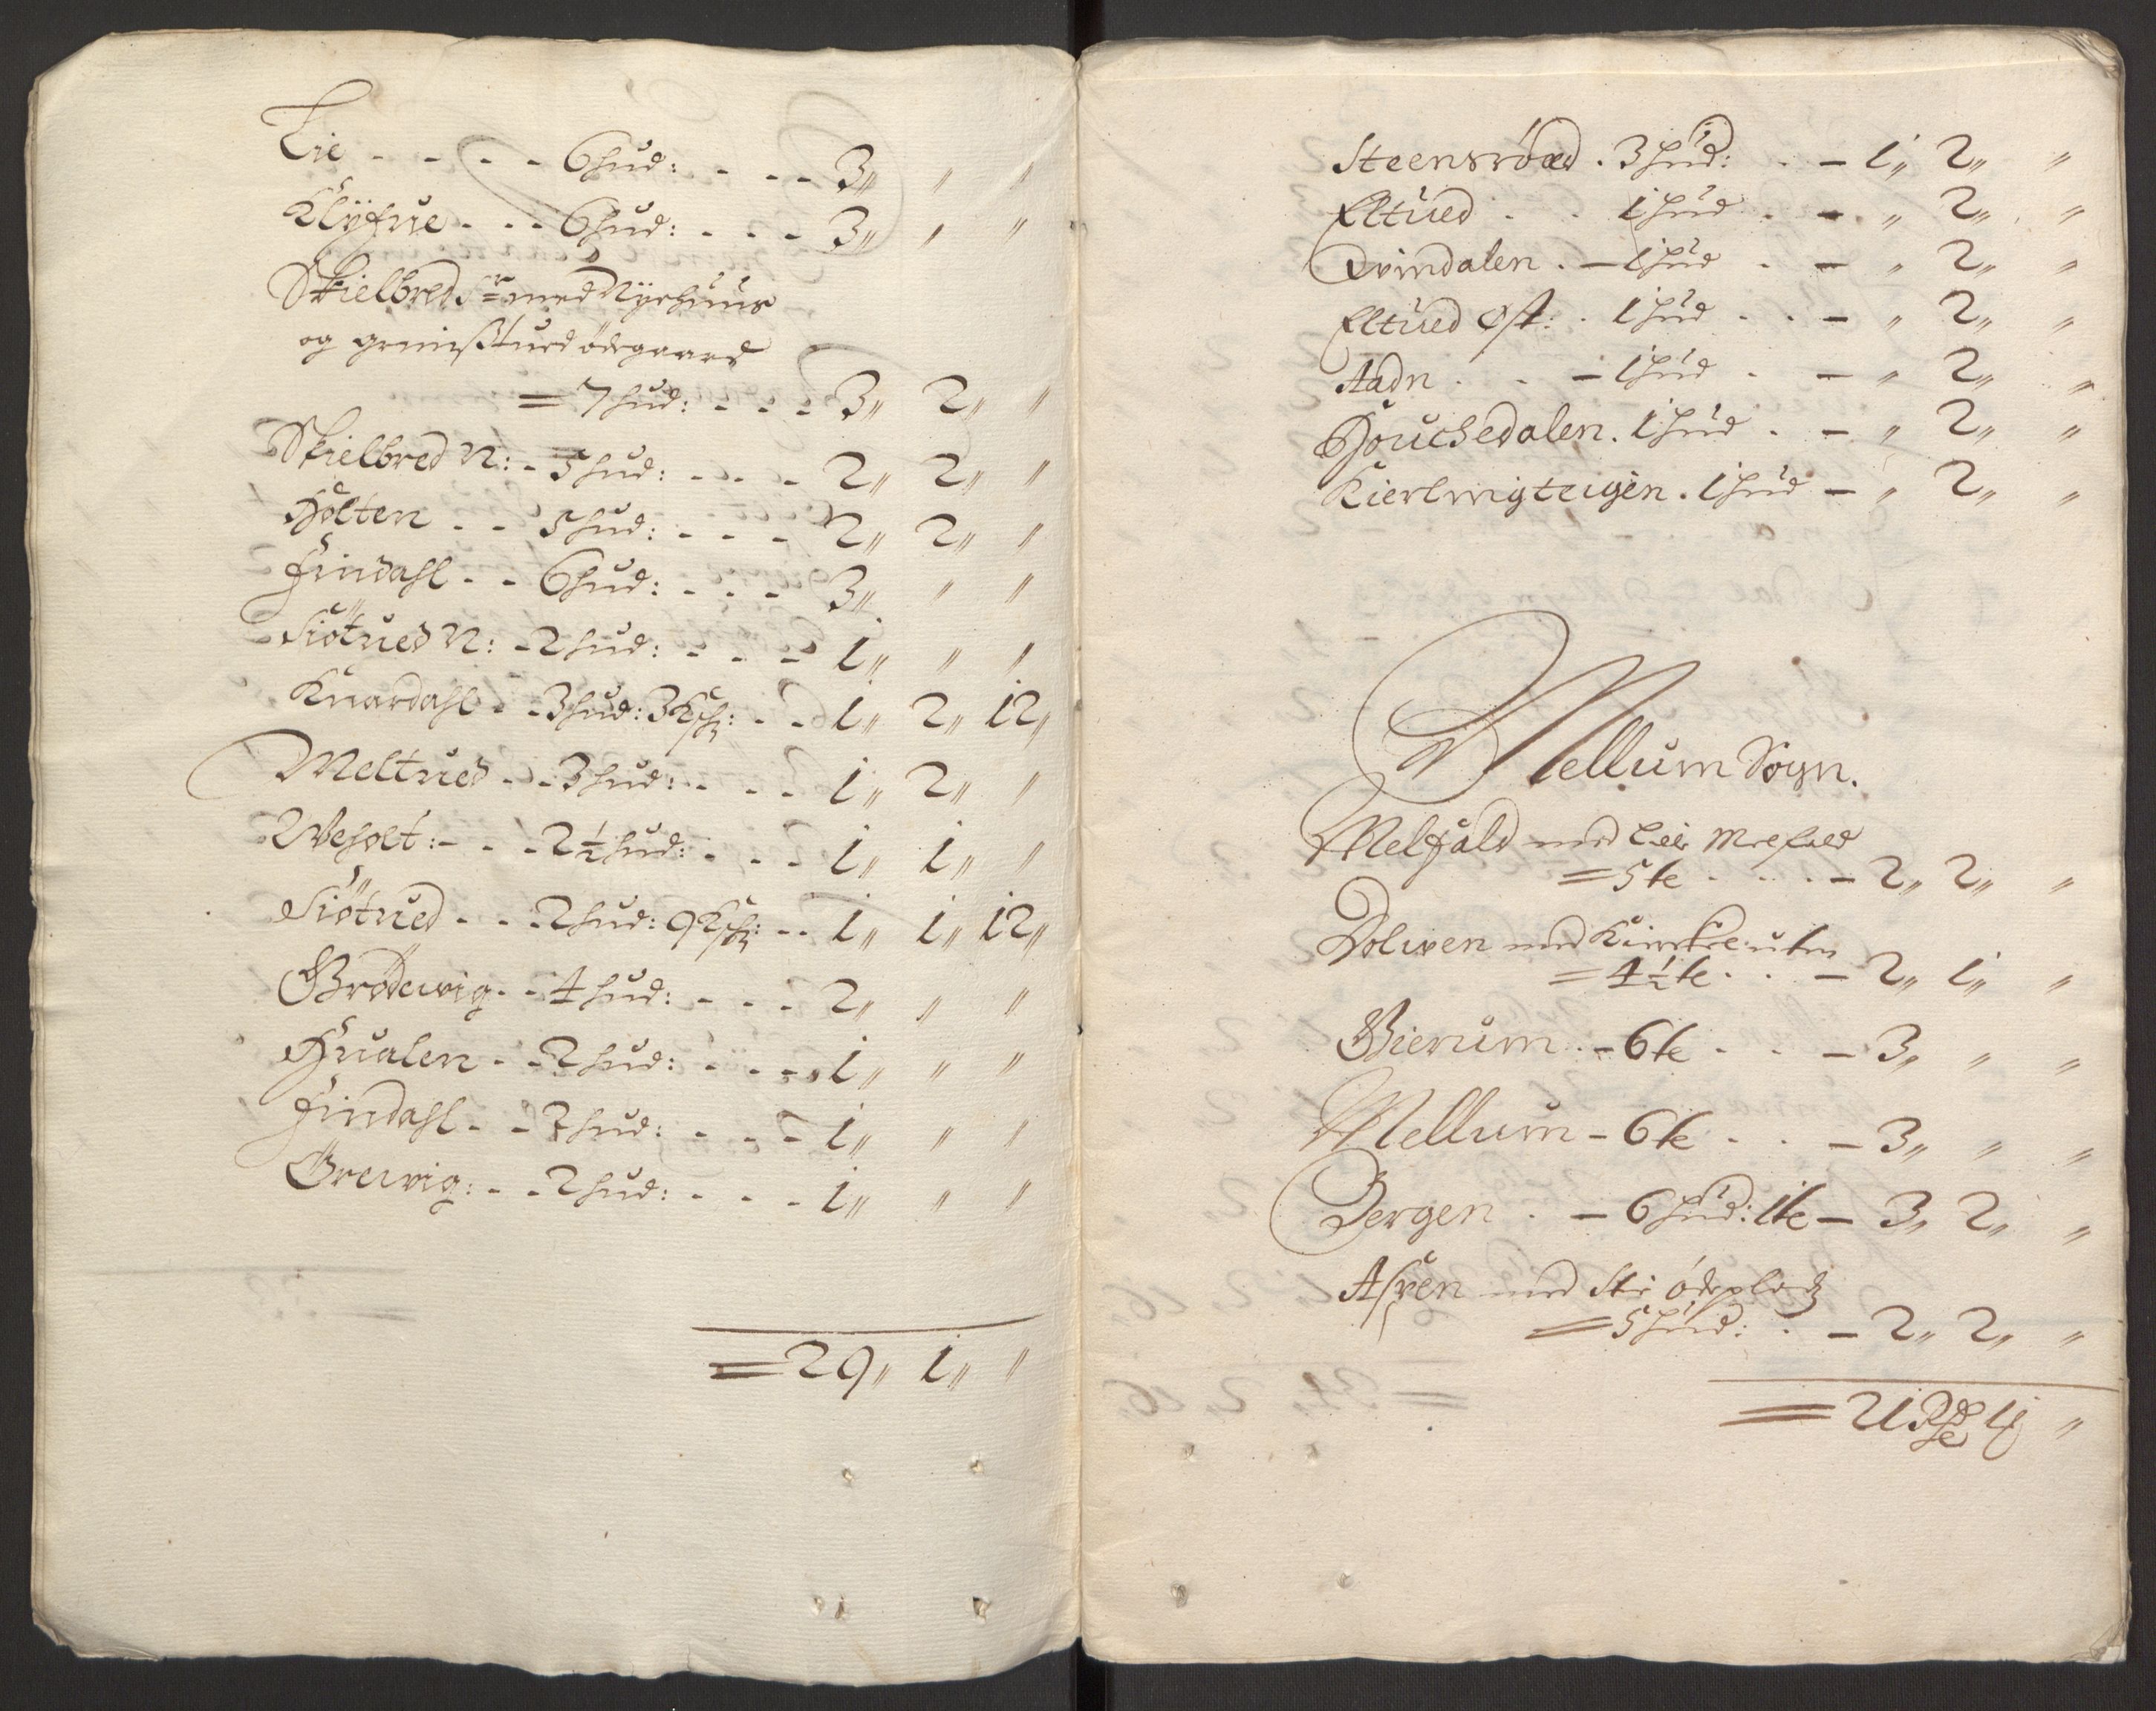 Lie - - - - 6 hud: - - - 3 〃 〃 〃
Klÿfve - - - 6 hud: - - - 3 〃 〃 〃
Skielbred Sr med Nyehuus
og ödegaard
= 7 hud: - - - 3 〃 2 〃 〃
Skielbred N: - 5 hud: - - - 2 〃 2 〃 〃
Holten - - 5 hud: - - - 2 〃 2 〃 〃
Findahl - - 6 hud: - - - 3 〃 〃 〃
Siötued N: - 2 hud: - - - 1 〃 〃 〃
Knardahl - - 3 hud: 3 Ksh: - - 1 〃 2 〃 12 〃
Meltued - - 3 hud: - - - 1 〃 2 〃 〃
Weholt: - - - 2 ½ hud: - - - 1 〃 1 〃 〃
Siötued - - - 2 hud: 9 Ksh: - - 1 〃 1 〃 12 〃
Brödewig - - 4 hud: - - - 2 〃 〃 〃
Hualen - - 2 hud: - - - 1 〃 〃 〃
Findahl - - 2 hud: - - - 1 〃 〃 〃
Grewig: - - 2 hud: - - - 1 〃 〃 〃
= 29 〃 1 〃 〃
Steensröed . 3 hud: . - 1 〃 2 〃 〃
Eltued . . 1 hud . - 〃 2 〃 〃
Qvindalen . - 1 hud . - 〃 2 〃 〃
Eltued Øst: . 1 hud . . - 〃 2 〃 〃
Aadn . . - 1 hud . - 〃 2 〃 〃
Houchedalen . 1 hud . - 〃 2 〃 〃
Kierlingteigen . 1 hud - 〃 2 〃 〃
Mellum Sogn.
Melfald med Melfald
= 5 te . . . - 2 〃 2 〃 〃
Dolwen med
= 4 ½ te . . - 2 〃 1 〃 〃
Bierum . - 6 te . . - 3 〃 〃 〃
Mellum - 6 te . . - 3 〃 〃 〃
Bergen . - 6 hud: 1 te - 3 〃 2 〃 〃
Aspen med Sti ödeplads
= 5 hud: . - 2 〃 2 〃 〃
= 21 Rdr 1 〃 〃